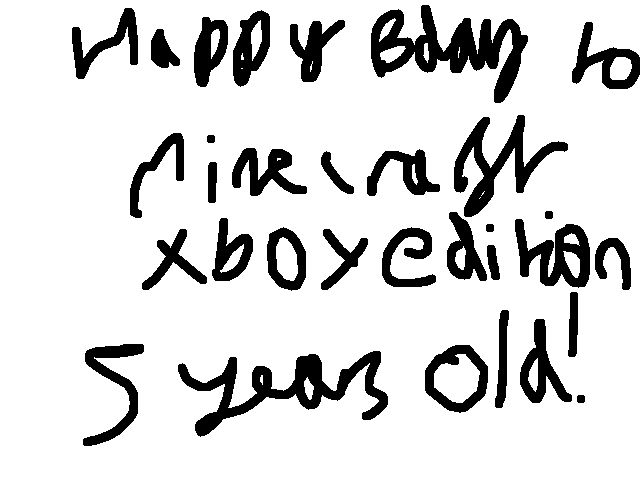 Happy Bday to
Minecraft
xbox edition
5 years old!